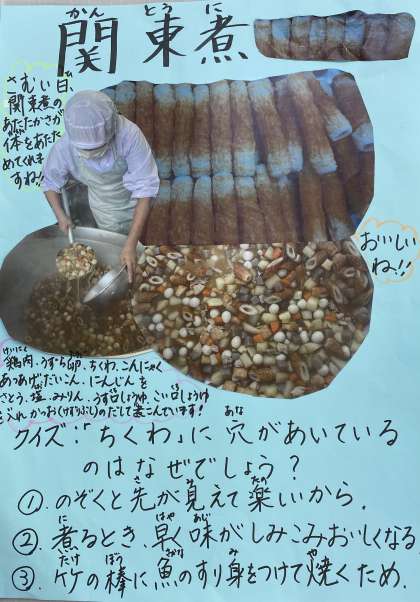 かん とう に
関東煮
さむい日、
関東煮の
あたたかさが
体をあたた
めてくれま
すね!!
おいしい
ね!!
けいにく
鶏肉、うずら卵、ちくわ、こんにゃく
あつあげ、だいこん、にんじんを
さとう、塩、みりん、うす口しょうゆ、こい口しょうゆ
を入れ かつお(けずりぶし)のだしで煮こんでいます!
あな
クイズ:「ちくわ」に 穴があいている
のは なぜでしょう?
さき み たの
①.のぞくと先が見えて楽しいから.
に はや あじ
②.煮るとき、早く味がしみこみおいしくなる
たけ ぼう さかな み や
③.竹の棒に魚のすり身をつけて焼くため.